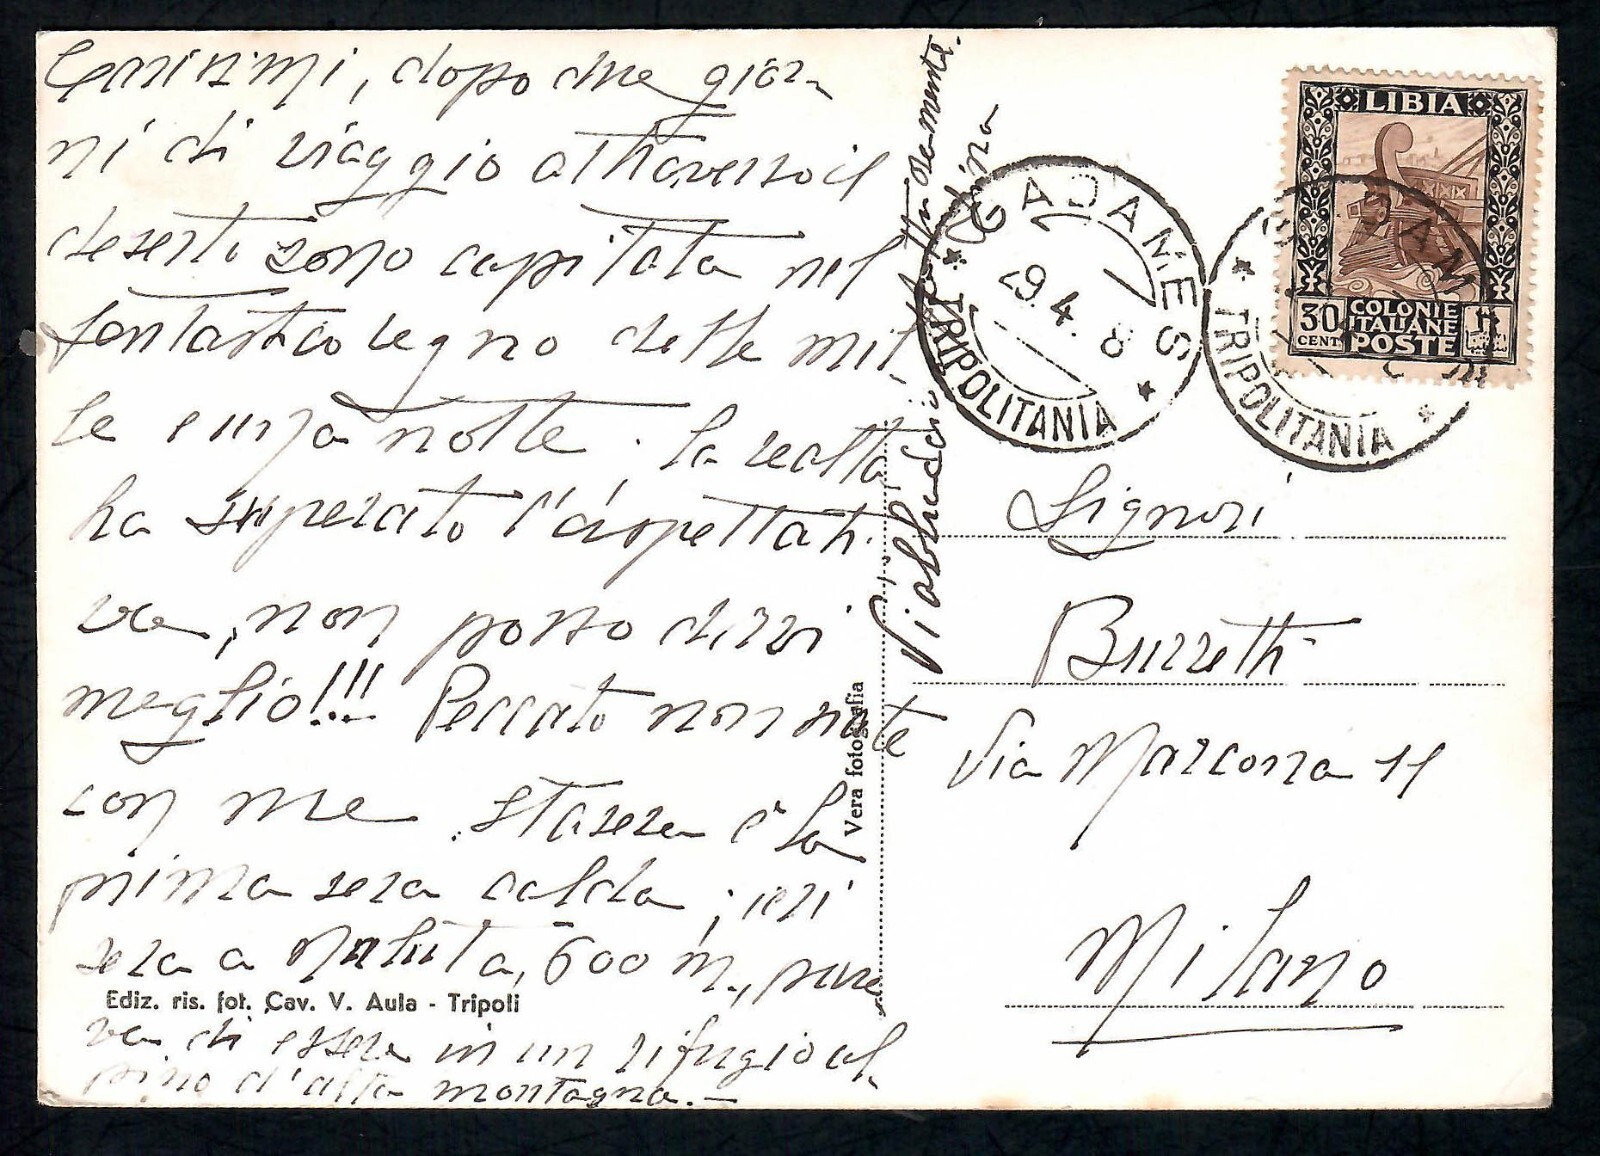 Carissimi, dopo due gior-
ni di viaggio attraverso il
deserto sono capitata nel
fantastico regno delle mil-
le e una notte. La realtà
ha superato l'aspettati-
va, non posso dirvi
meglio!!! Peccato non siate
con me. Stasera è la
prima sera calda; ieri
sera a Nalut, a 600 m., pare
va di essere in un rifugio al-
pino d'alta montagna.-
Vi abbraccio affettuosamente.
Ediz. ris. fot. Cav. V. Aula - Tripoli
Vera fotografia
GADAMES
29.4. 8
* TRIPOLITANIA *
LIBIA
30
CENT
COLONIE
ITALIANE
POSTE
* TRIPOLITANIA *
Signori
Buzzetti
Via Marcona 11
Milano